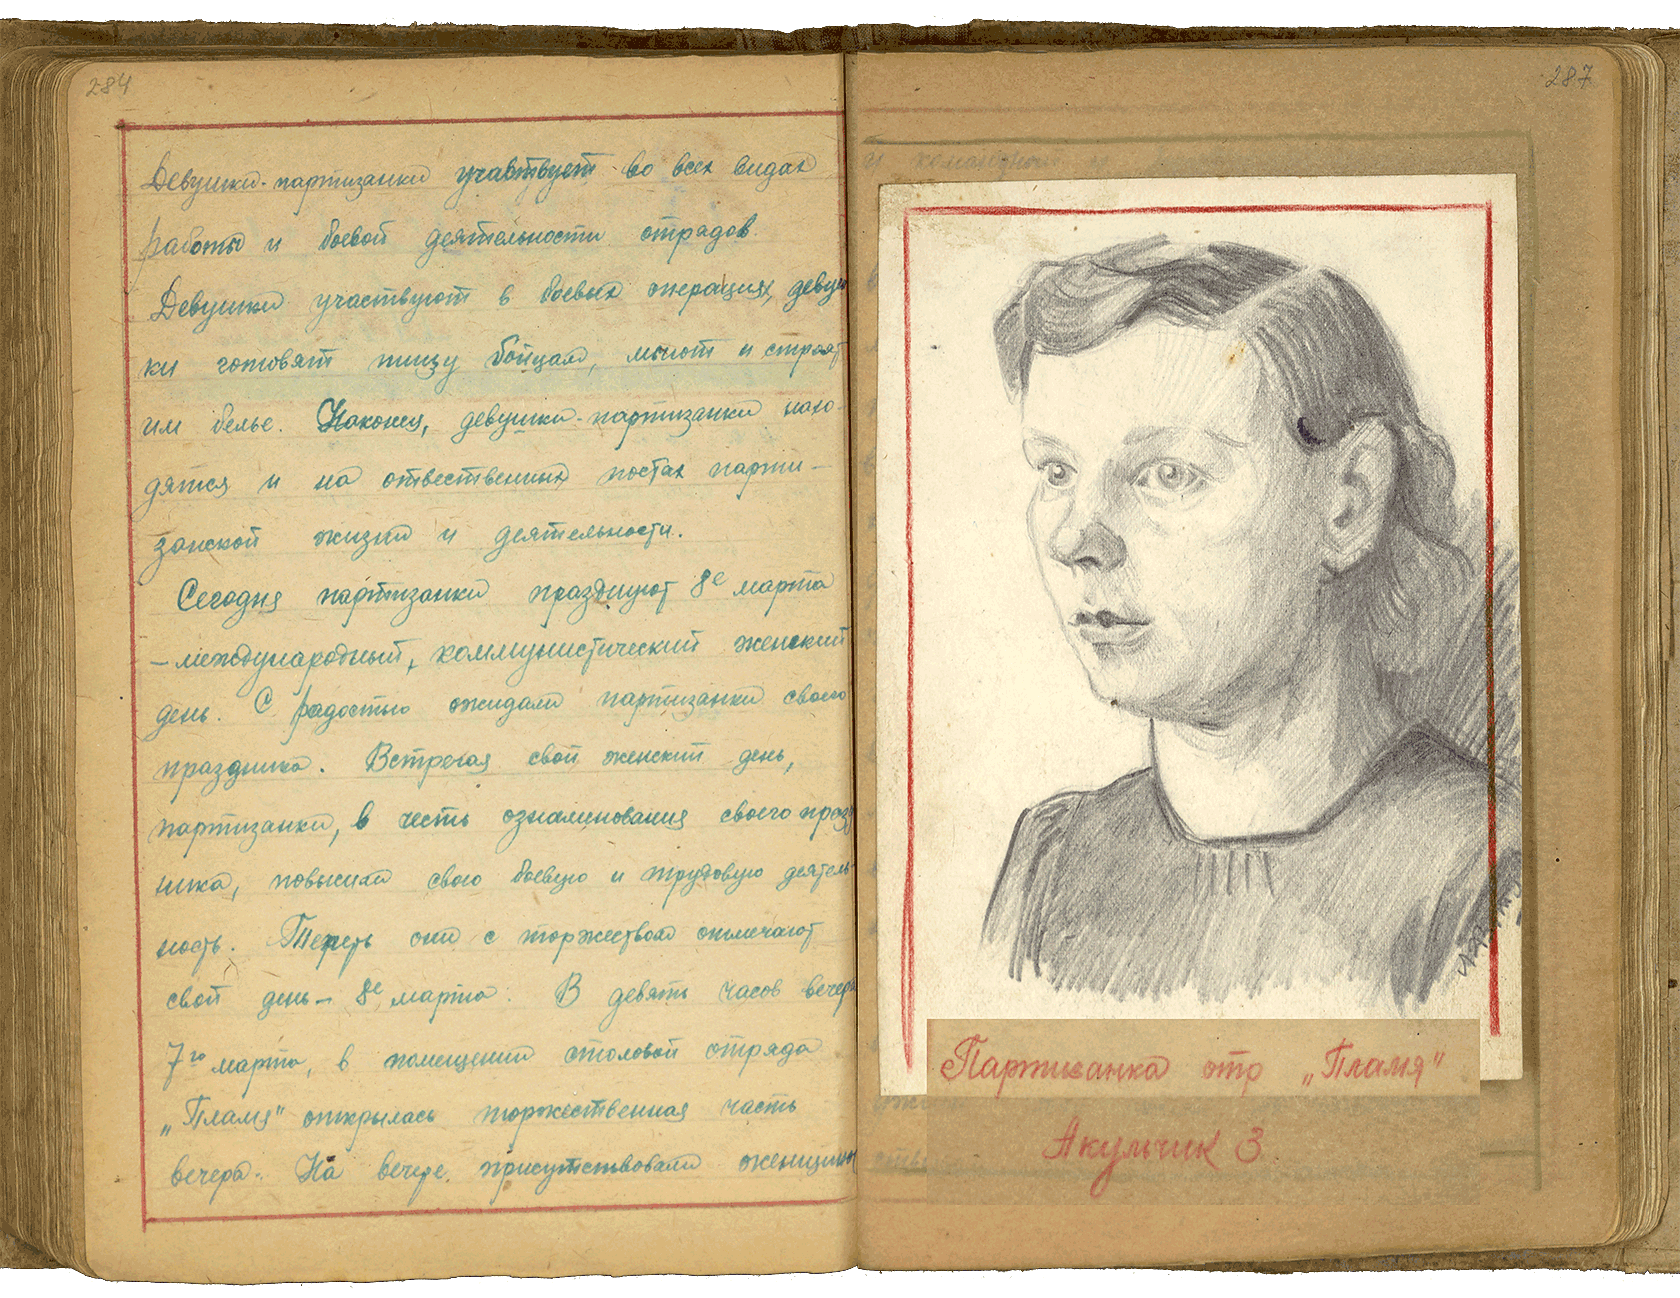 284
Девушки-партизанки участвует во всех видах
работы и боевой деятельности отрядов.
Девушки участвуют в боевых операциях, девуш
ки готовят пищу бойцам, моют и строят
им белье. Наконец, девушки-партизанки нахо-
дятся и на отвественных постах парти-
занской жизни и деятельности.
Сегодня партизанки празднуют 8е марта
– международный, коммунистический женский
день. С радостью ожидали партизанки своего
праздника. Встречая свой женский день,
партизанки, в честь ознаменования своего празд
ника, повысили свою боевую и трудовую деятель
ность. Теперь они с торжеством отмечают
свой день – 8е марта. В девять часов вечера
7го марта, в помещении столовой отряда
„Пламя" открылась торжественная часть
вечера. На вечере присутствовали женщины
287
Партизанка отр „Пламя"
Акульчик З